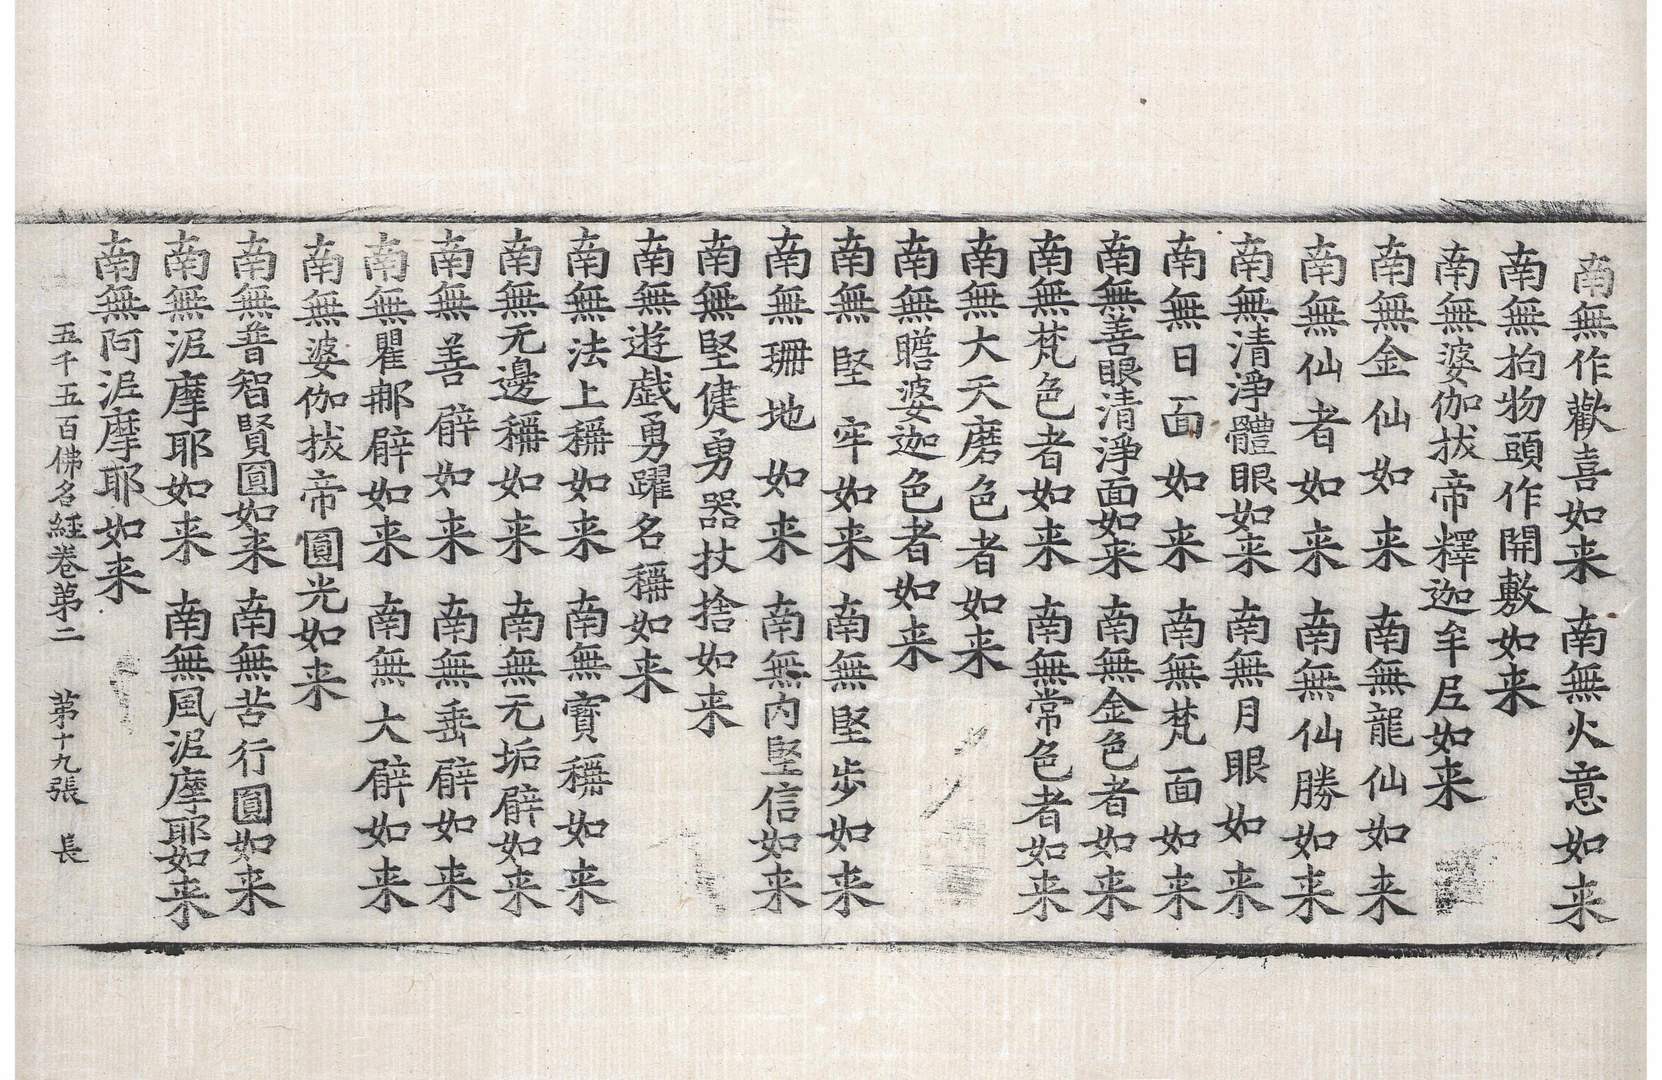 南無作歡喜如来 南無火意如来
南無拘物頭作開敷如来
南無婆伽拔帝釋迦牟尼如来
南無金仙如来 南無龍仙如来
南無仙者如来 南無仙勝如来
南無清淨體眼如来 南無月眼如来
南無日面如来 南無梵面如来
南無善眼清淨面如来 南無金色者如来
南無梵色者如来 南無常色者如来
南無大天磨色者如来
南無瞻婆迦色者如来
南無堅牢如来 南無堅步如来
南無珊地如来 南無内堅信如来
南無堅健勇器杖捨如来
南無遊戯勇躍名稱如来
南無法上稱如来 南無寳稱如来
南無无邊稱如来 南無无垢臂如来
南無善臂如来 南無垂臂如来
南無瞿那臂如来 南無大臂如来
南無婆伽拔帝圓光如来
南無普智賢圓如来 南無苦行圓如来
南無泥摩耶如来 南無風泥摩耶如来
南無阿泥摩耶如来
五千五百佛名經卷苐二 苐十九張 長